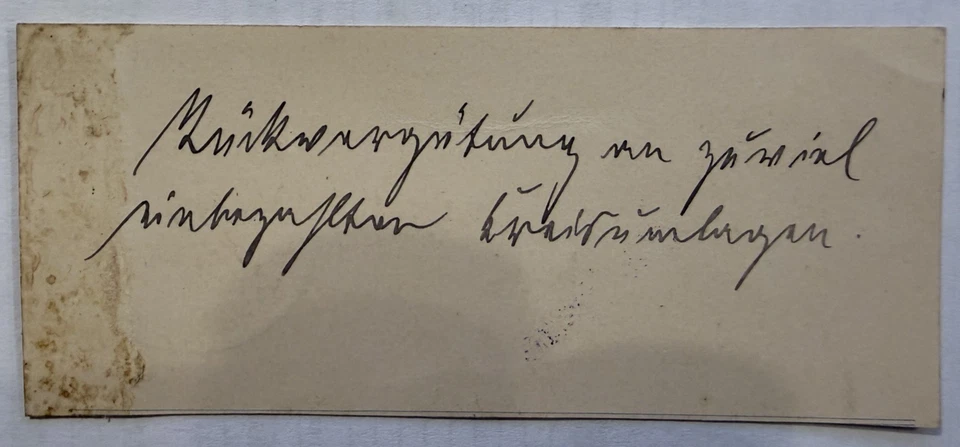 Rückvergütung an zuviel
einbezahlten Kreisumlagen.